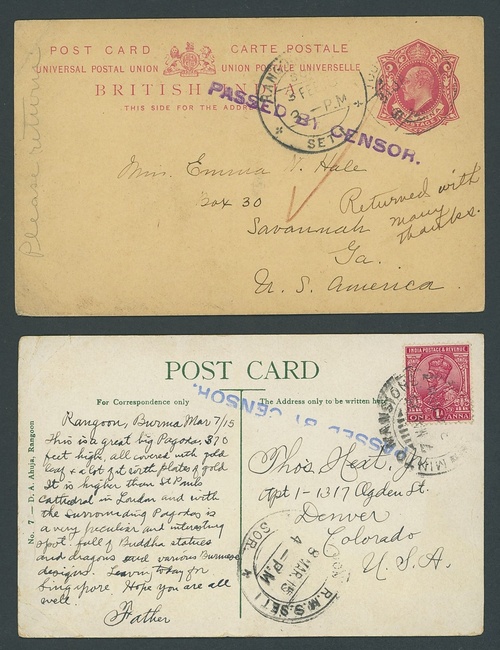 POST CARD CARTE POSTALE
UNIVERSAL POSTAL UNION UNION POSTALE UNIVERSELLE
BRITISH INDIA
THIS SIDE FOR THE ADDRESS
PASSED BY CENSOR.
P.M
SET
Please return
Miss. Emma V. Hale
Box 30
Savannah
Ga.
U. S. America
Returned with
many
thanks.
POST CARD
For Correspondence only
The Address only to be written here
PASSED BY CENSOR.
INDIA POSTAGE & REVENUE
ONE 1A ANNA
No. 7 — D. A. Ahuja, Rangoon
Rangoon, Burma Mar 7/15
This is a great big Pagoda 370
feet high all covered with gold
leaf + a lot of it with plates of gold
It is higher than St Pauls
Cathedral in London and with
the surrounding Pagodas is
a very peculiar and interesting
spot. full of Buddha statues
and dragons and various Burmese
designs. Leaving today for
Singapore Hope you are all
well.
Father
Thos. Heat, Jr.
Apt 1 - 1317 Ogden St.
Denver
Colorado
U. S. A.
R.M.S. SET I
SOR
4 - P.M
8 MAR. 15